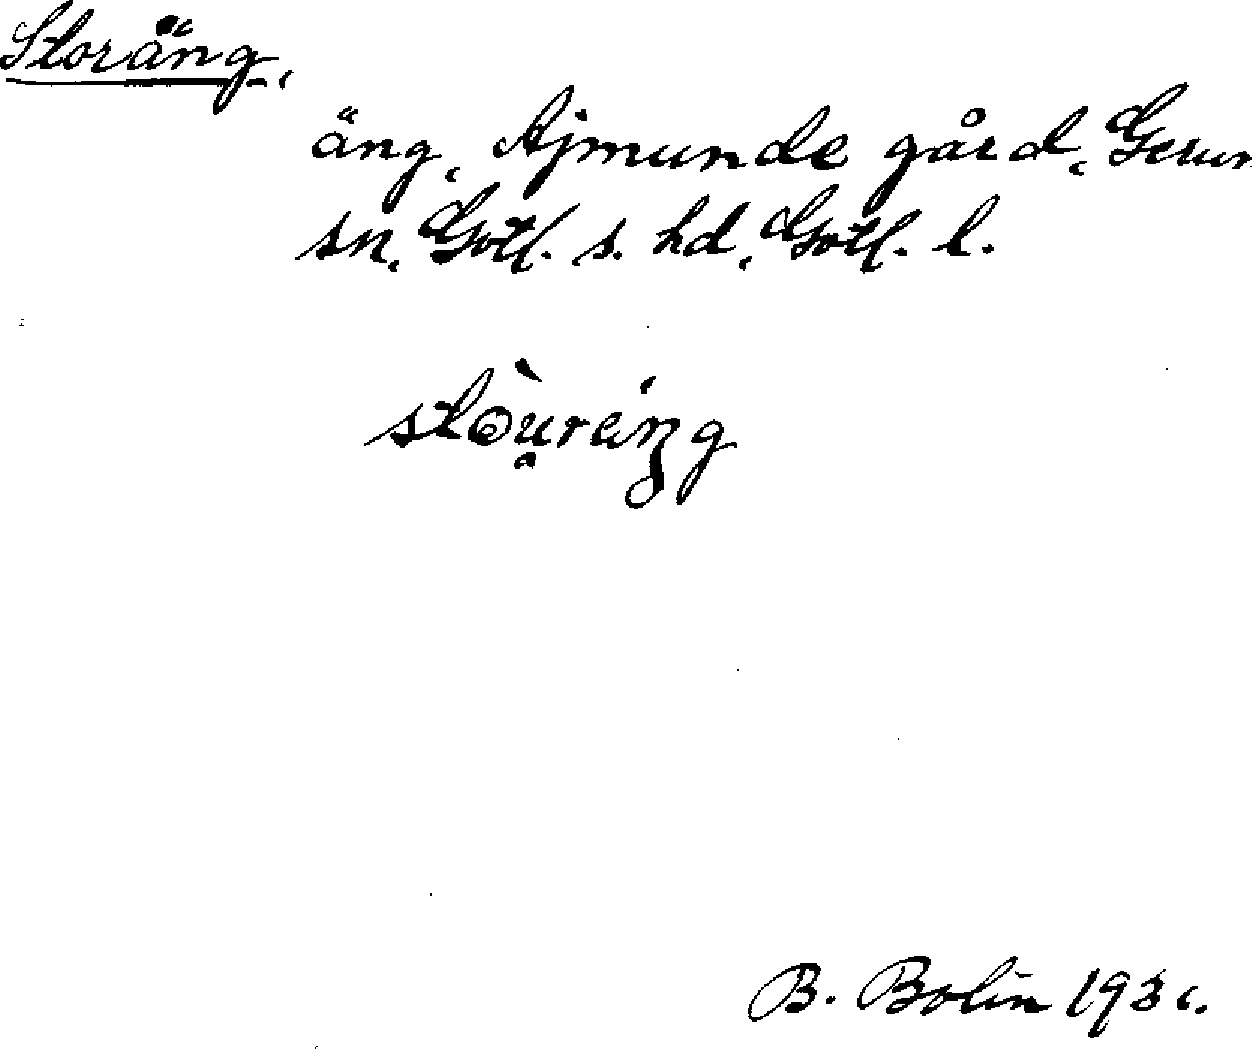 Storäng,
äng, Ajmunde gård, Gerum
sn, Gotl. s. hd, Gotl. l.
B. Bolin